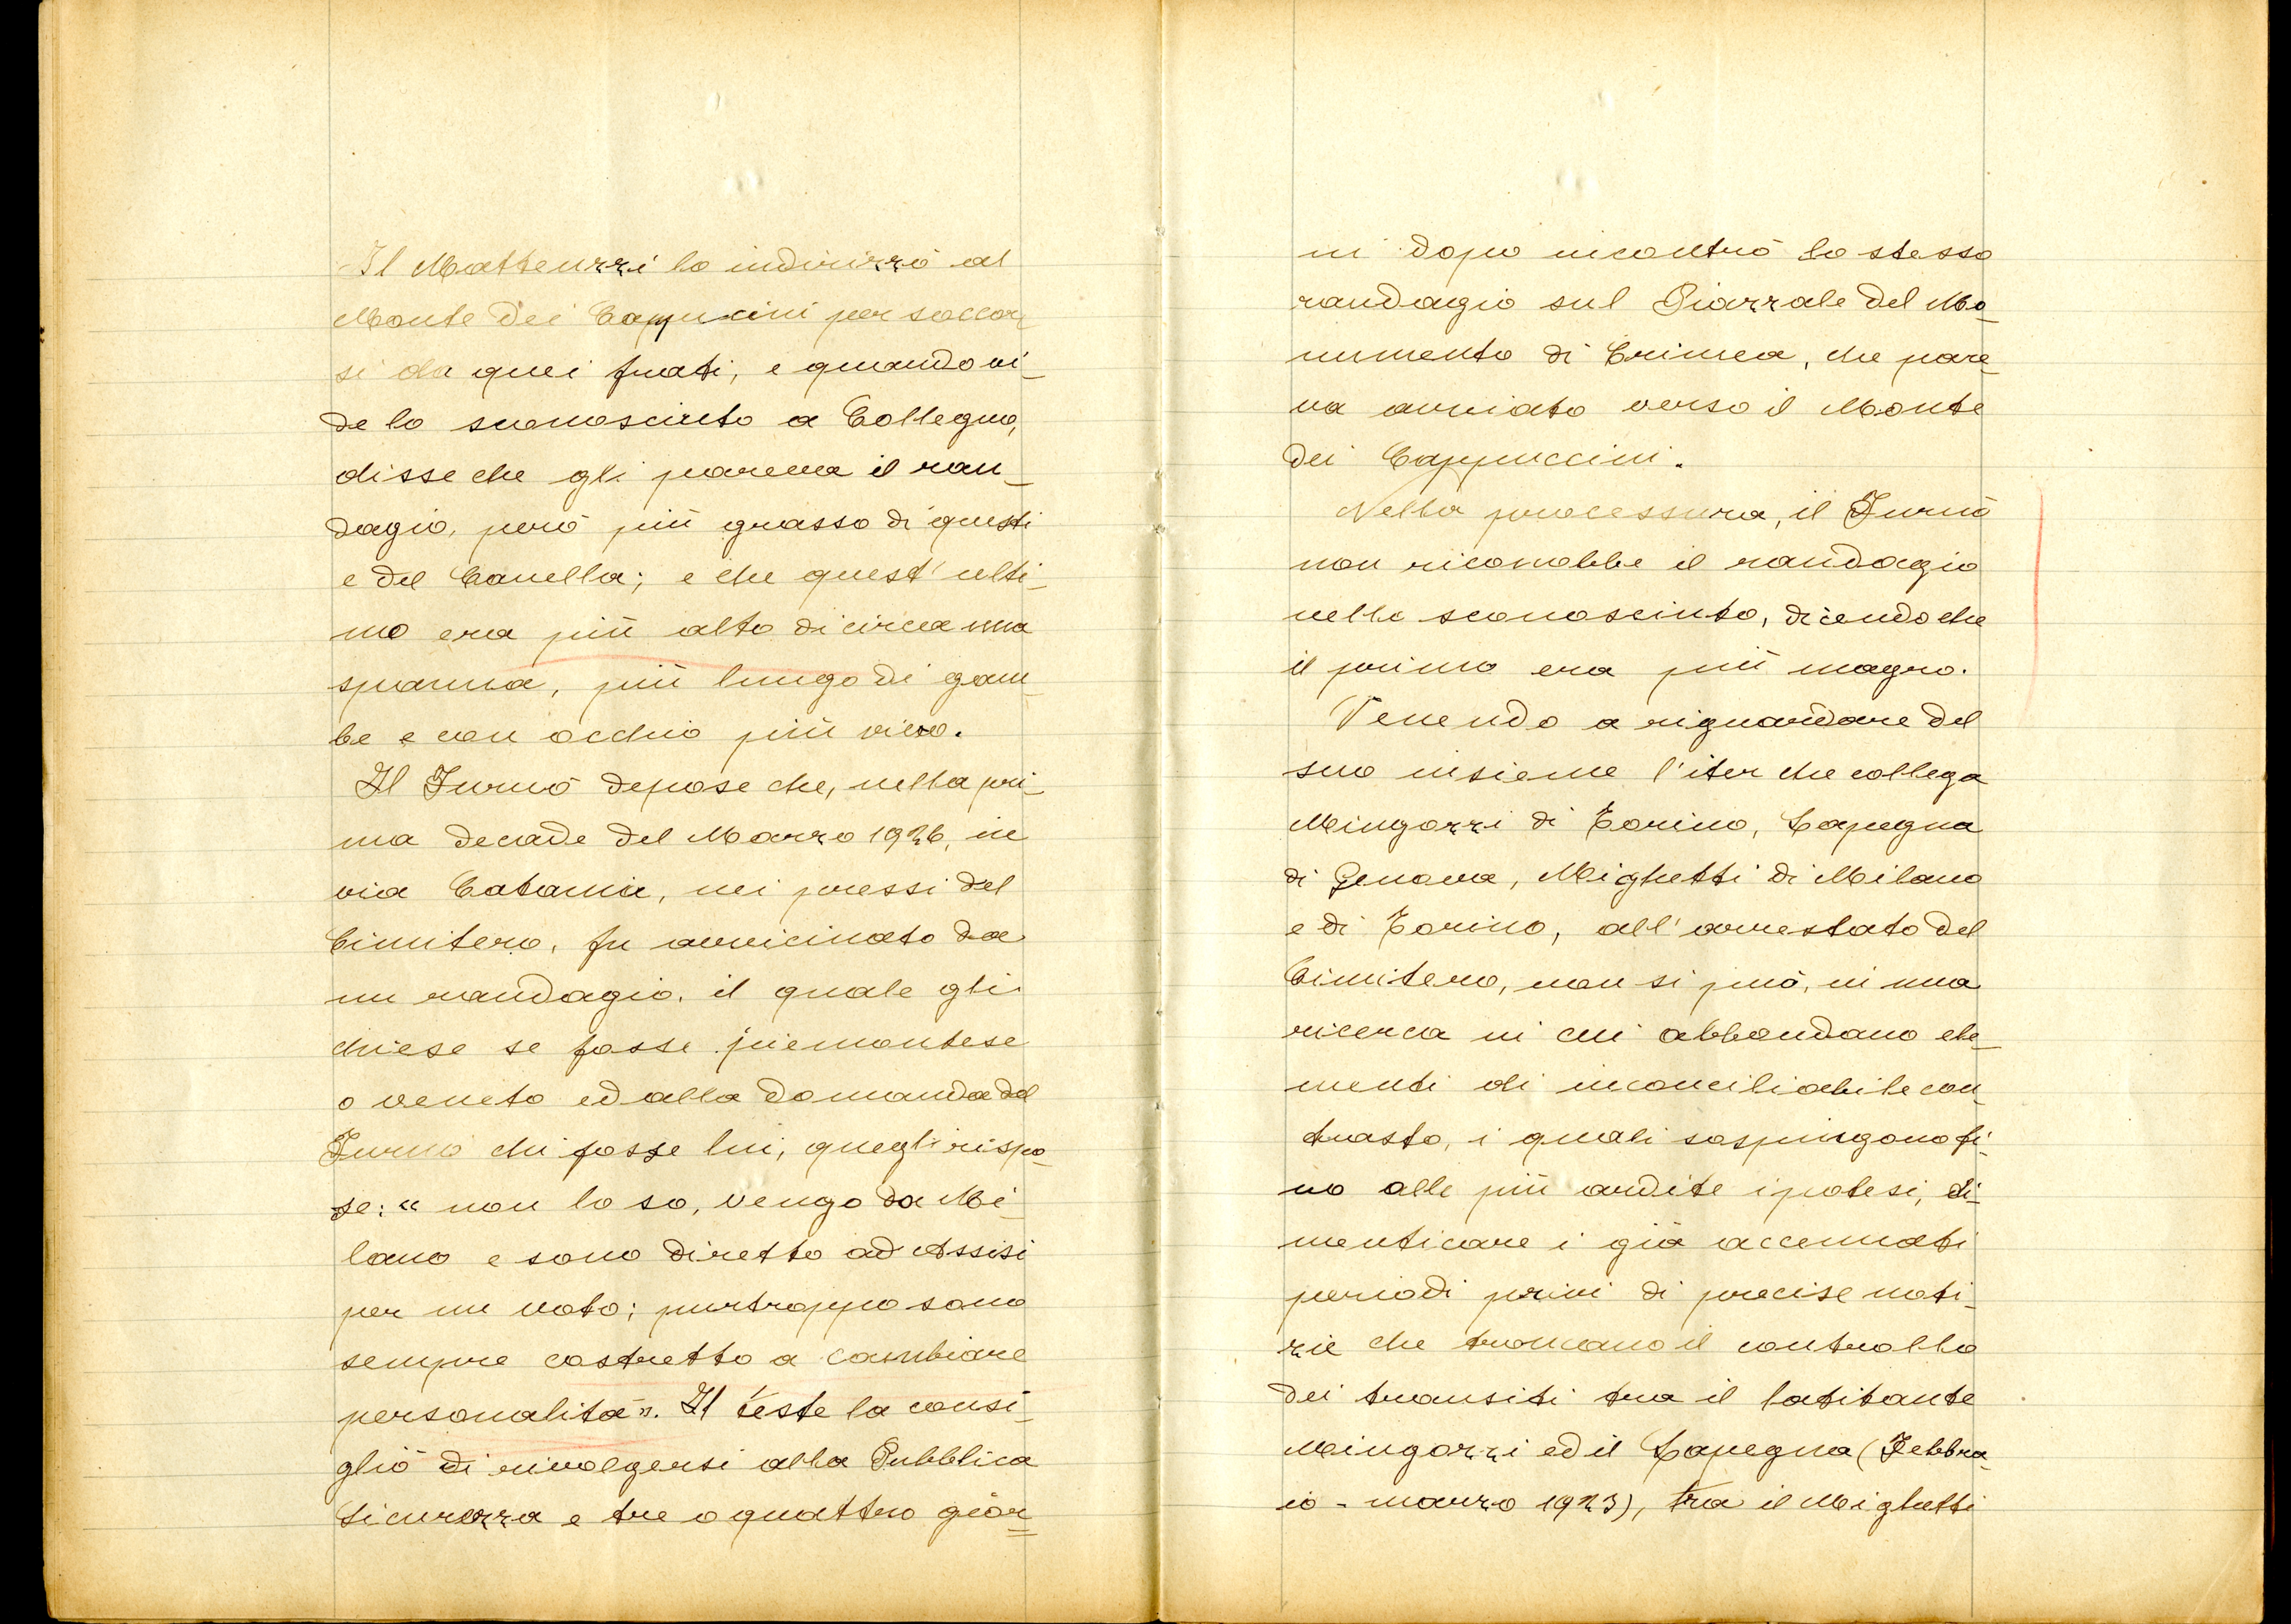 Il Matteuzzi lo indirizzò al
Monte dei Cappuccini per soccor_
si da quei frati, e quando vi_
de lo sconosciuto a Collegno,
disse che gli pareva il ran_
dagio, però più grasso di questi
e del Canella; e che quest'ulti_
mo era più alto di circa una
spanna, più lungo di gam_
be e con occhio più vivo.
Il Furnò depose che, nella pri_
ma decade del Marzo 1926, in
via Catania, nei pressi del
Cimitero, fu avvicinato da
un randagio, il quale gli
chiese se fosse piemontese
o veneto ed alla domanda del
Furnò chi fosse lui, quegli rispo_
se: « non lo so, vengo da Mi_
lano e sono diretto ad Assisi
per un voto; purtroppo sono
sempre costretto a cambiare
personalità». Il teste lo consi_
gliò di rivolgersi alla Pubblica
Sicurezza e tre o quattro gior_
ni dopo incontrò lo stesso
randagio sul Piazzale del Mo_
numento di Crimea, che pare_
va avviato verso il Monte
dei Cappuccini.
Nella processura, il Furnò
non riconobbe il randagio
nello sconosciuto, dicendo che
il primo era più magro.
Venendo a riguardare del
suo insieme l'iter che collega
Mingozzi di Torino, Lapegna
di Genova, Mighetti di Milano
e di Torino, all'arrestato del
Cimitero, non si può, in una
ricerca in cui abbondano ele_
menti di inconciliabile con_
trasto, i quali sospingono fi_
no alle più ardite ipotesi, di_
menticare i già accennati
periodi privi di precise noti_
zie che troncano il controllo
dei transiti tra il latitante
Mingozzi ed il Lapegna (Febbra_
io - marzo 1923), tra il Mighetti